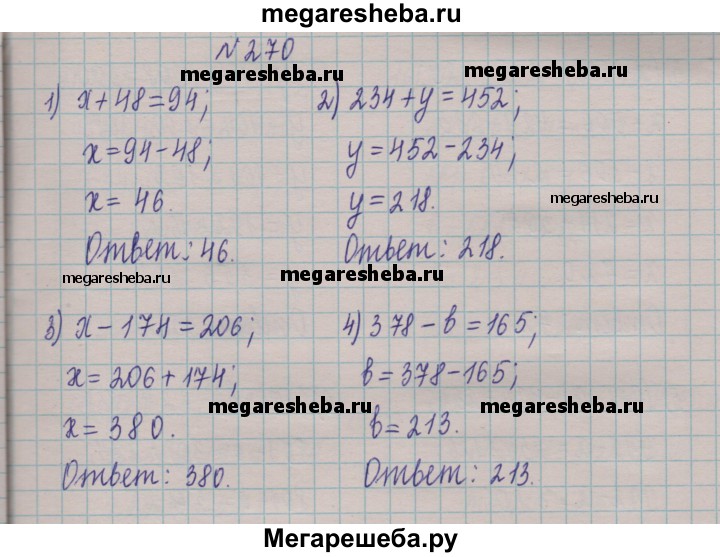 megaresheba.ru
№ 270
megaresheba.ru megaresheba.ru
1) x + 48 = 94; 2) 234 + y = 452;
x = 94 - 48; y = 452 - 234;
megaresheba.ru
x = 46. y = 218.
Ответ: 46. Ответ: 218.
megaresheba.ru megaresheba.ru
3) x - 174 = 206; 4) 378 - b = 165;
x = 206 + 174; b = 378 - 165;
megaresheba.ru megaresheba.ru
x = 380. b = 213.
Ответ: 380. Ответ: 213.
Мегарешеба.ру